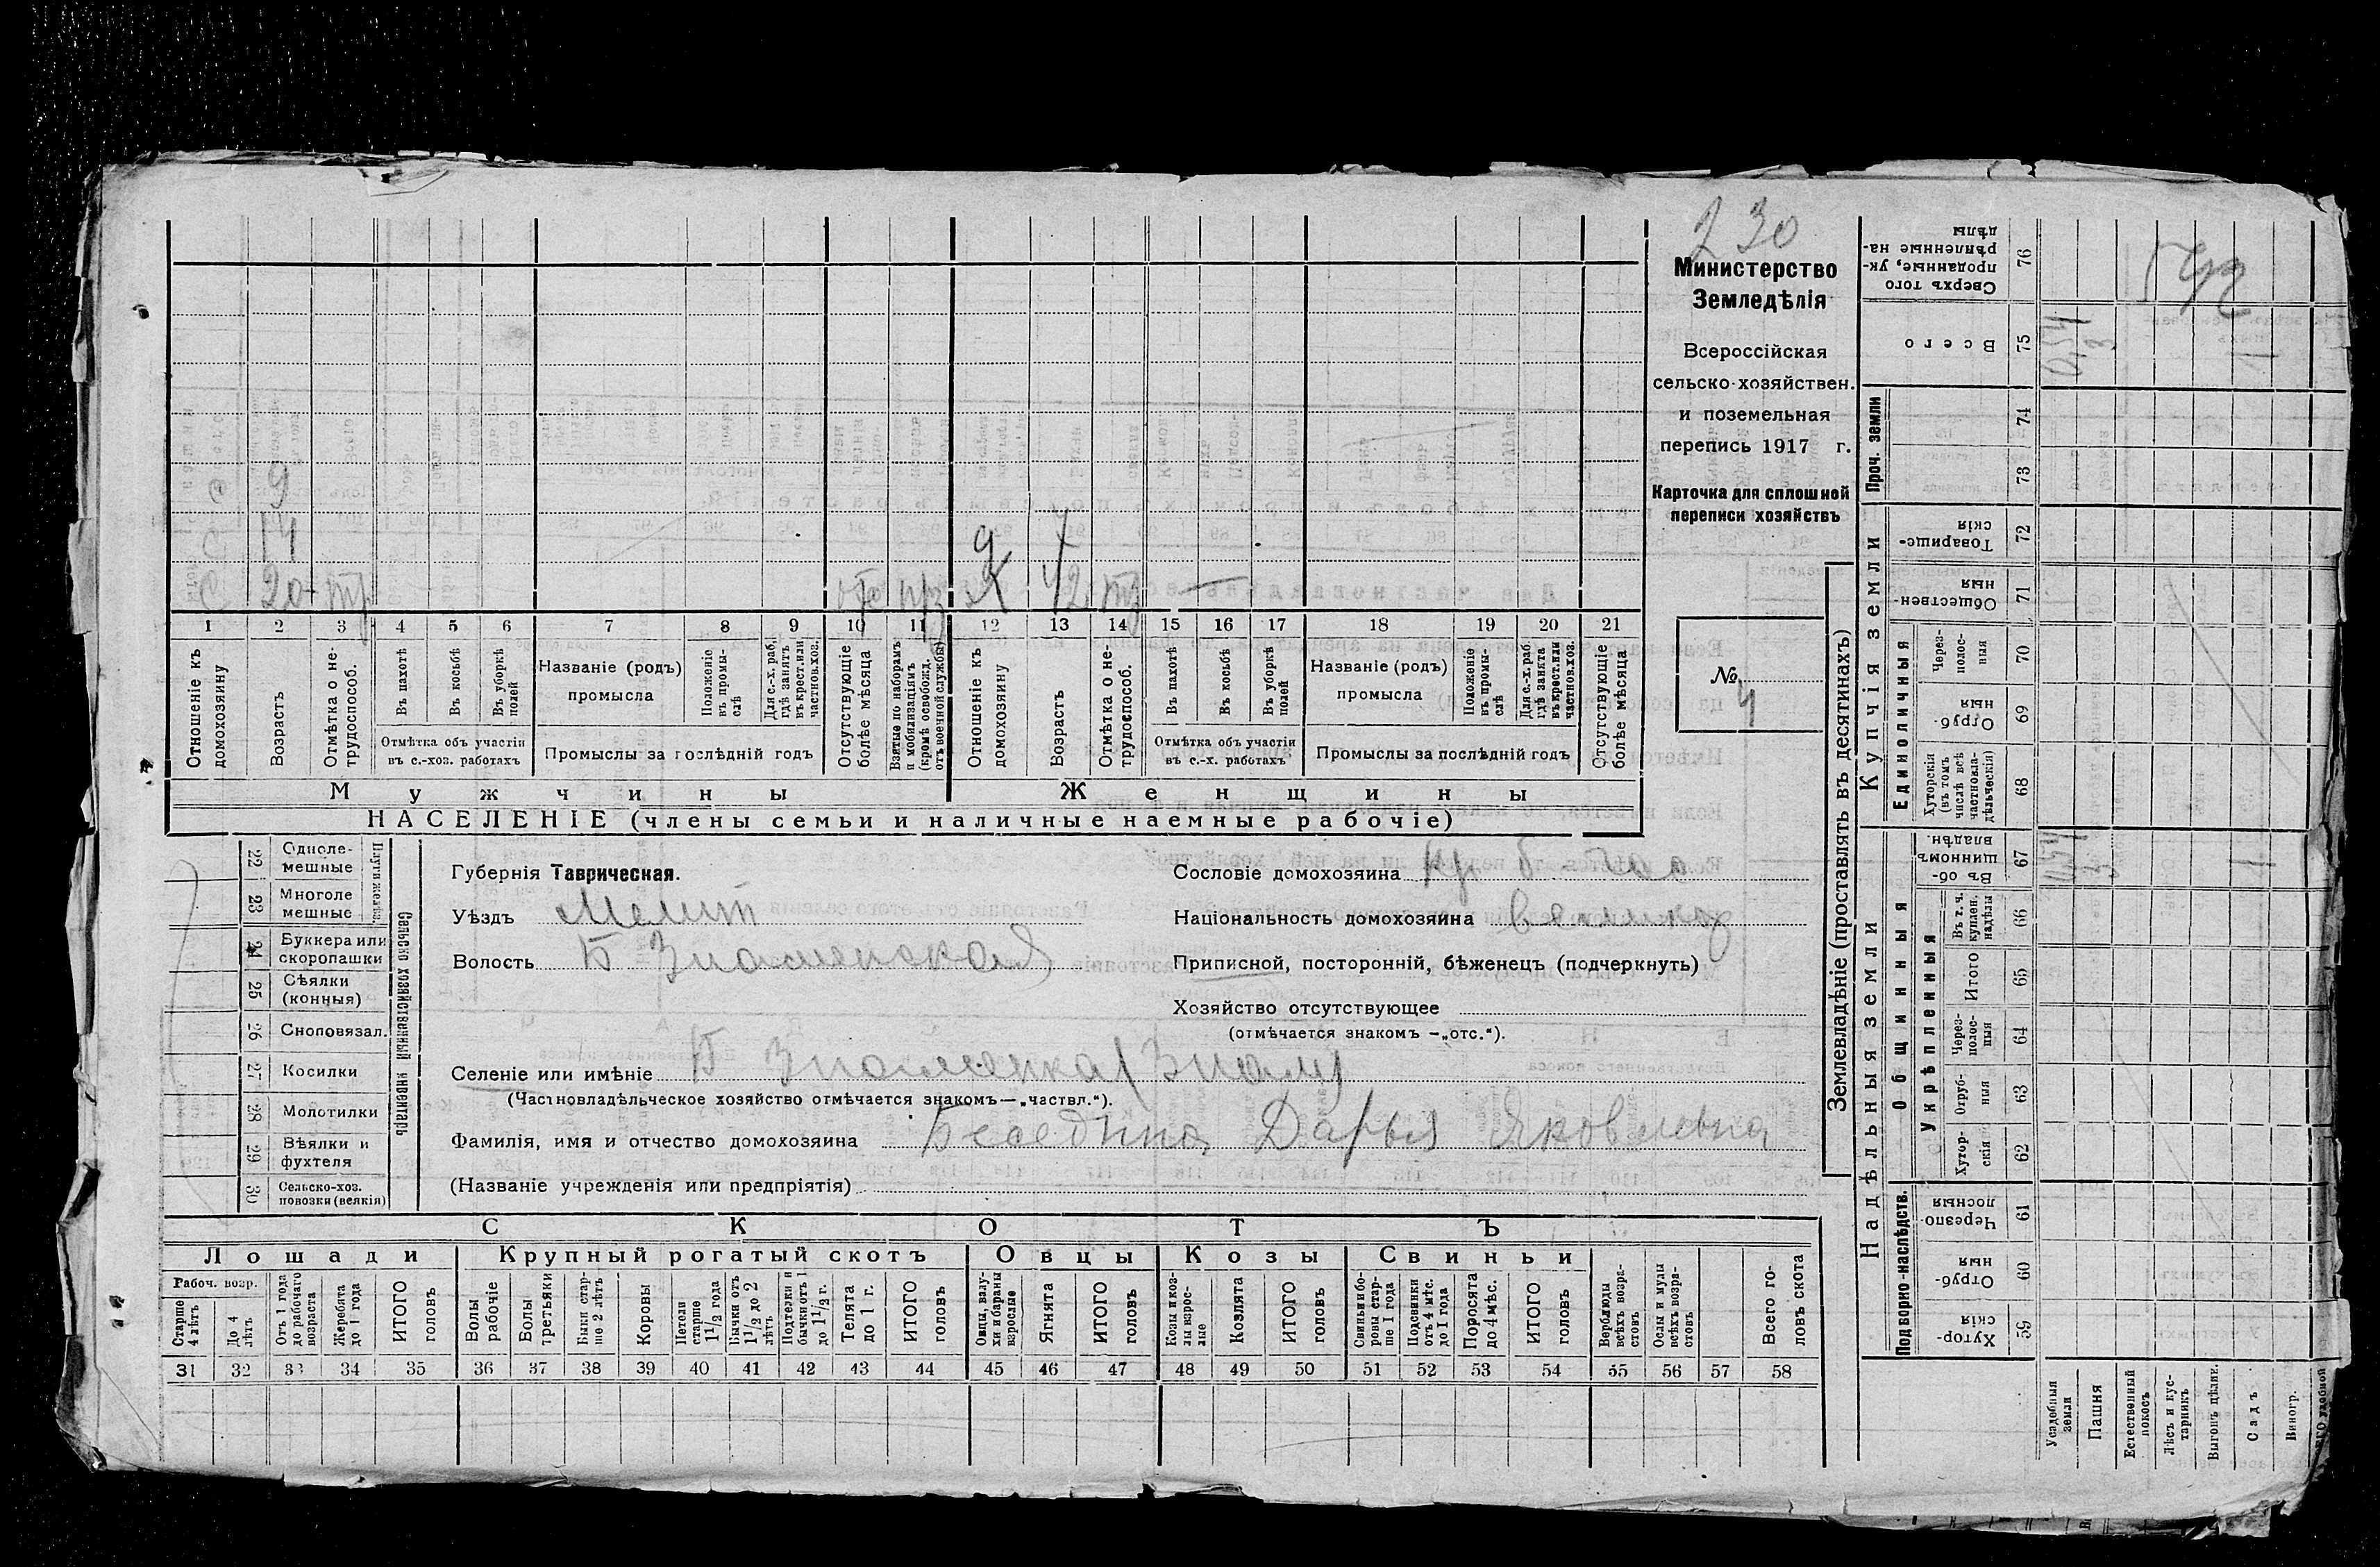 230
Министерство
Земледѣлія
Всероссійская
сельско-хозяйствен.
и поземельная
перепись 1917 г.
Карточка для сплошной
переписи хозяйствъ
№ 4
9
14
9 4
С 20 42
1 2 3 4 5 6 7 8 9 10 11 12 13 14 15 16 17 18 19 20 21
Отношеніе къ домохозяину
Возрастъ
Отмѣтка о не-трудоспособ.
Въ пахотѣ
Въ косьбѣ
Въ уборкѣ полей
Отмѣтка объ участіи въ с.-хоз. работахъ
Названіе (родъ) промысла
Положеніе въ промы-слѣ
Для с.-х. раб. гдѣ занятъ въ крест. или частнов. хоз.
Промыслы за послѣдній годъ
Отсутствующіе болѣе мѣсяца
Взятые по наборамъ и мобилизаціямъ (кромѣ освобожд. отъ военной службы)
Отношеніе къ домохозяину
Возрастъ
Отмѣтка о не-трудоспособ.
Въ пахотѣ
Въ косьбѣ
Въ уборкѣ полей
Отмѣтка объ участіи въ с.-х. работахъ
Названіе (родъ) промысла
Положеніе въ промы-слѣ
Для с.-х. раб. гдѣ занята въ крест. или частнов. хоз.
Промыслы за послѣдній годъ
Отсутствующіе болѣе мѣсяца
Мужчины Женщины
НАСЕЛЕНІЕ (члены семьи и наличные наемные рабочіе)
22 Одноле-мешные
23 Многоле мешные
24 Буккера или скоропашки
25 Сѣялки (конныя)
26 Сноповязал.
27 Косилки
28 Молотилки
29 Вѣялки и фухтеля
30 Сельско-хоз. повозки (всякія)
Сельско хозяйственный инвентарь
Губернія Таврическая.
Уѣздъ Мелит
Волость Б Знаменская
Сословіе домохозяина
Національность домохозяина великор
Приписной, посторонній, бѣженецъ (подчеркнуть)
Хозяйство отсутствующее
(отмѣчается знакомъ —„отс.“).
Селеніе или имѣніе Б Знаменка (Знам)
(Частновладѣльческое хозяйство отмѣчается знакомъ—„частвл.“).
Фамилія, имя и отчество домохозяина Беседина Дарья Яковлевна
(Названіе учрежденія или предпріятія)
СКОТЪ
Лошади Крупный рогатый скотъ Овцы Козы Свиньи
Рабоч. возр.
Старше 4 лѣтъ
До 4 лѣтъ
Отъ 1 года до рабочаго возраста
Жеребята до 1 года
ИТОГО головъ
Волы рабочіе
Волы третьяки
Быки стар-ше 2 лѣтъ
Коровы
Нетели старше 1 1/2 года
Бычки отъ 1 1/2 до 2 лѣтъ
Подтелки и бычки отъ 1 до 1 1/2 г.
Телята до 1 г.
ИТОГО головъ
Овцы, валу-хи и бараны взрослые
Ягнята
ИТОГО головъ
Козы и коз-лы взрос-лые
Козлята
ИТОГО головъ
Свиньи и бо-ровы стар-ше 1 года
Подсвинки отъ 4 мѣс. до 1 года
Поросята до 4 мѣс.
ИТОГО головъ
Верблюды всѣхъ возра-стовъ
Ослы и мулы всѣхъ возра-стовъ
Всего го-ловъ скота
31 32 33 34 35 36 37 38 39 40 41 42 43 44 45 46 47 48 49 50 51 52 53 54 55 56 57 58
Землевладѣніе (проставлять въ десятинахъ)
Купчія земли
Надѣльныя земли
Проч. земли
Единоличныя
Общинныя
Укрѣпленныя
Подворно-наслѣдств.
Сверхъ того проданные, ук-рѣпленные на-дѣлы 76
Всего 75
74
73
Товарище-скія 72
Обществен-ныя 71
Через-полос-ныя 70
Отруб-ныя 69
Хуторскія (въ томъ числѣ всѣ частновла-дѣльческія) 68
Въ об-щинномъ владѣн. 67
Въ т. ч. куплен. надѣлы 66
Итого 65
Через-полос-ныя 64
Отруб-ныя 63
Хутор-скія 62
Черезпо-лосныя 61
Отруб-ныя 60
Хутор-скія 59
Усадебныя земля
Пашня
Естественный покосъ
Лѣсъ и кус-тарникъ
Выгонъ цѣлин.
Садъ
Виногр.